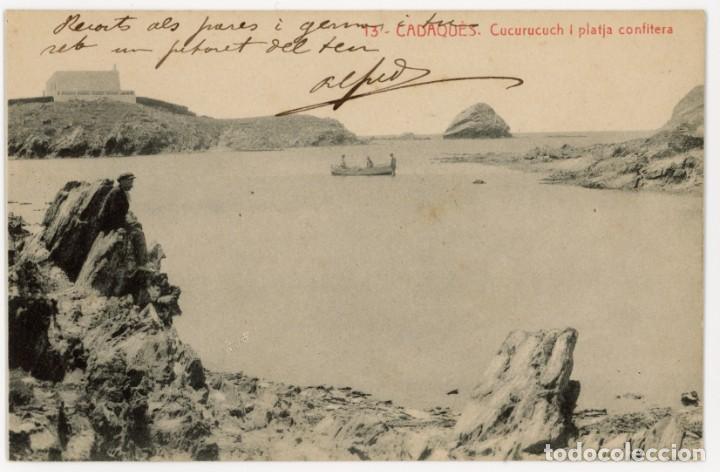 Recorts als pares i germans i tu
reb un petonet del teu
Alfred
13.- CADAQUÈS. Cucurucuch i platja confitera
todocoleccion